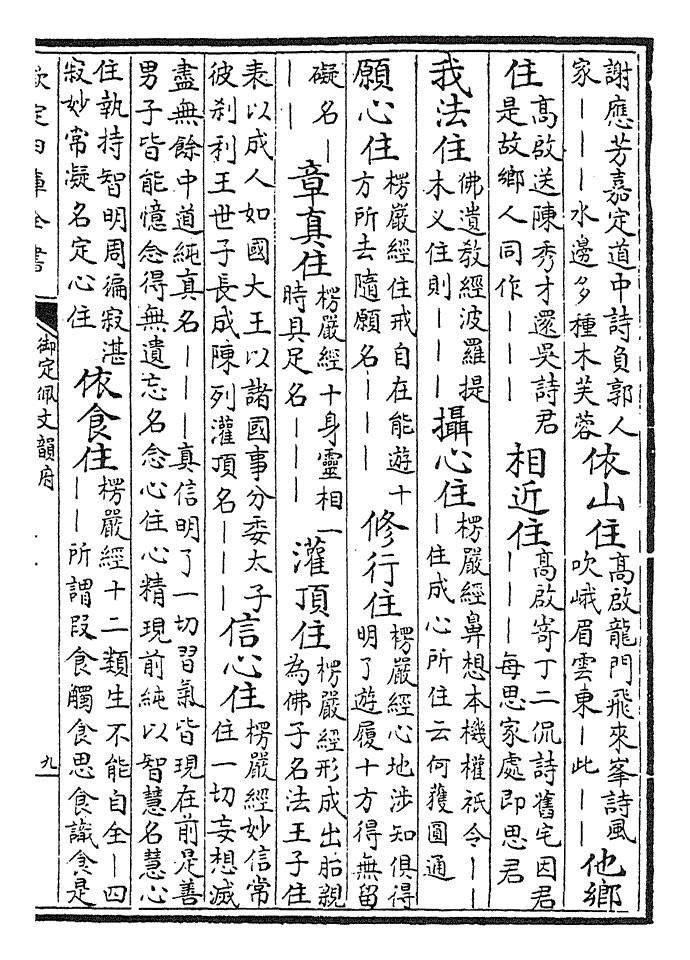 謝應芳嘉定道中詩負郭人
家｜｜｜水邊多種木芙蓉
依山住
高啟龍門飛來峯詩風
吹峨眉雲東｜此｜｜
他鄉
住
高啟送陳秀才還吳詩君
是故鄉人同作｜｜｜
相近住
高啟寄丁二侃詩舊宅因君
｜｜｜每思家處即思君
我法住
佛遺教經波羅提
木义住則｜｜｜
攝心住
楞嚴經鼻想本機權祇令｜｜
｜住成心所住云何獲圓通
願心住
楞嚴經住戒自在能遊十
方所去隨願名｜｜｜
修行住
楞嚴經心地涉知俱得
明了遊履十方得無留
礙名｜
｜｜
章真住
楞嚴經十身靈相一
時具足名｜｜｜
灌頂住
楞嚴經形成出胎親
為佛子名法王子住
表以成人如國大王以諸國事分委太子
彼剎利王世子長成陳列灌頂名｜｜｜
信心住
楞嚴經妙信常
住一切妄想滅
盡無餘中道純真名｜｜｜真信明了一切習氣皆現在前是善
男子皆能憶念得無遺忘名念心住心精現前純以智慧名慧心
住執持智明周徧寂湛
寂妙常凝名定心住
依食住
楞嚴經十二類生不能自全｜四
｜｜所謂段食觸食思食識食是
欽定四庫全書
御定佩文韻府
九